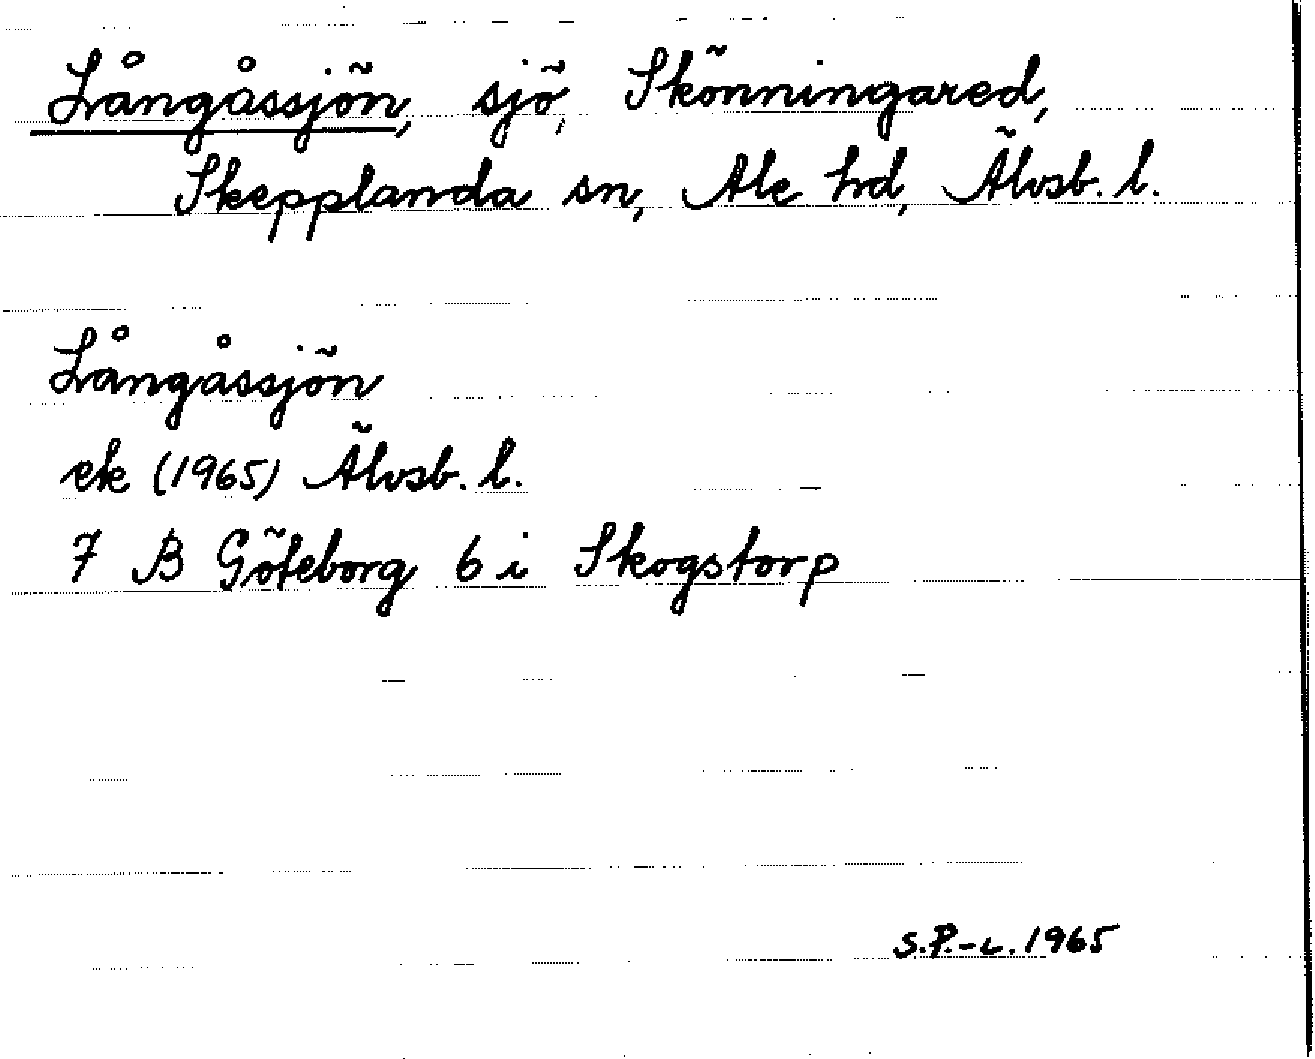 Långåssjön, sjö, Skönningared,
Skepplanda sn, Ale hd, Älvsb. l.
Långåssjön
ek (1965) Älvsb. l.
7 B Göteborg 6 i Skogstorp
S.P.-L. 1965